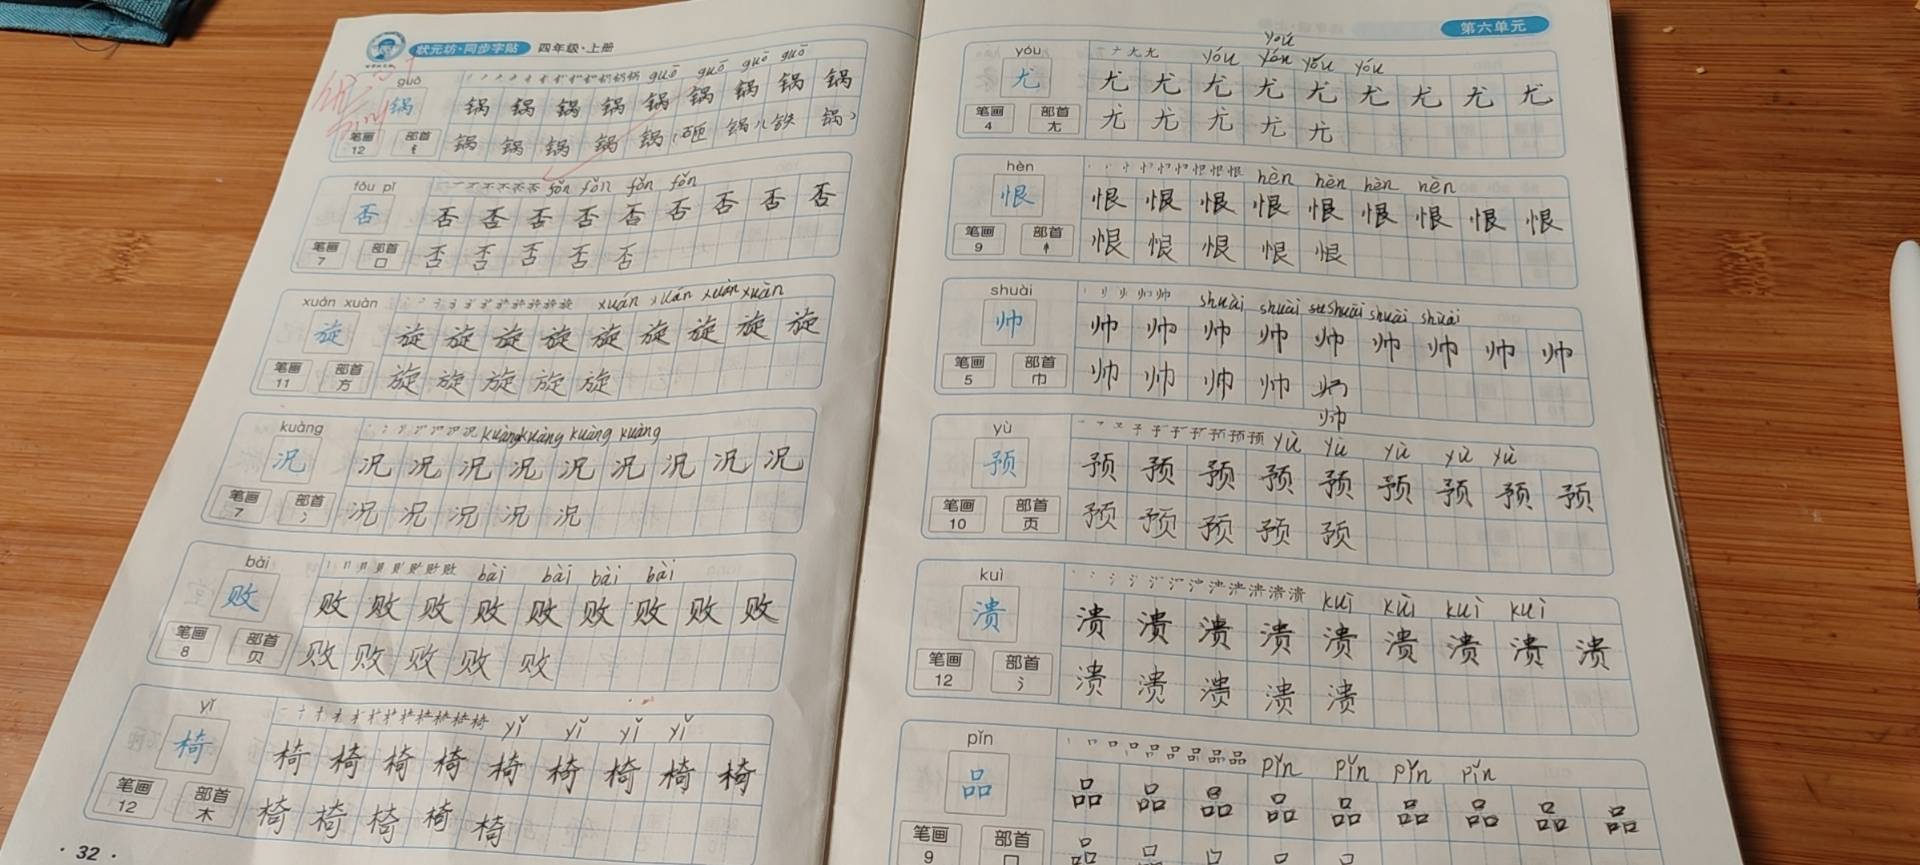 状元坊·同步字贴 四年级·上册
优
guō guō guō guō guō
锅 锅 锅 锅 锅 锅 锅 锅 锅 锅
笔画 12 部首 钅 锅 锅 锅 锅 锅(砸 锅 八 铁 锅)
fǒu pǐ fǒn fǒn fǒn fǒn
否 否 否 否 否 否 否 否 否 否
笔画 7 部首 口 否 否 否 否 否
xuán xuàn xuán xuán xuàn xuàn
旋 旋 旋 旋 旋 旋 旋 旋 旋 旋
笔画 11 部首 方 旋 旋 旋 旋 旋
kuàng kuàng kuàng kuàng kuàng
况 况 况 况 况 况 况 况 况 况
笔画 7 部首 冫 况 况 况 况 况
bài bài bài bài bài
败 败 败 败 败 败 败 败 败 败
笔画 8 部首 贝 败 败 败 败 败
yǐ yǐ yǐ yǐ yǐ
椅 椅 椅 椅 椅 椅 椅 椅 椅 椅
笔画 12 部首 木 椅 椅 椅 椅 椅
· 32 ·
第六单元
yóu
yóu yóu yóu yóu yóu
尤 尤 尤 尤 尤 尤 尤 尤 尤 尤
笔画 4 部首 尢 尤 尤 尤 尤 尤
hèn hèn hèn hèn hèn
恨 恨 恨 恨 恨 恨 恨 恨 恨 恨
笔画 9 部首 忄 恨 恨 恨 恨 恨
shuài shuài shuài shuài shuài shuài
帅 帅 帅 帅 帅 帅 帅 帅 帅 帅
笔画 5 部首 巾 帅 帅 帅 帅
帅
yù yù yù yù yù yù
预 预 预 预 预 预 预 预 预 预
笔画 10 部首 页 预 预 预 预 预
kuì kuì kuì kuì kuì
溃 溃 溃 溃 溃 溃 溃 溃 溃 溃
笔画 12 部首 氵 溃 溃 溃 溃 溃
pǐn pǐn pǐn pǐn pǐn
品 品 品 品 品 品 品 品 品 品
笔画 9 部首 口 品 品